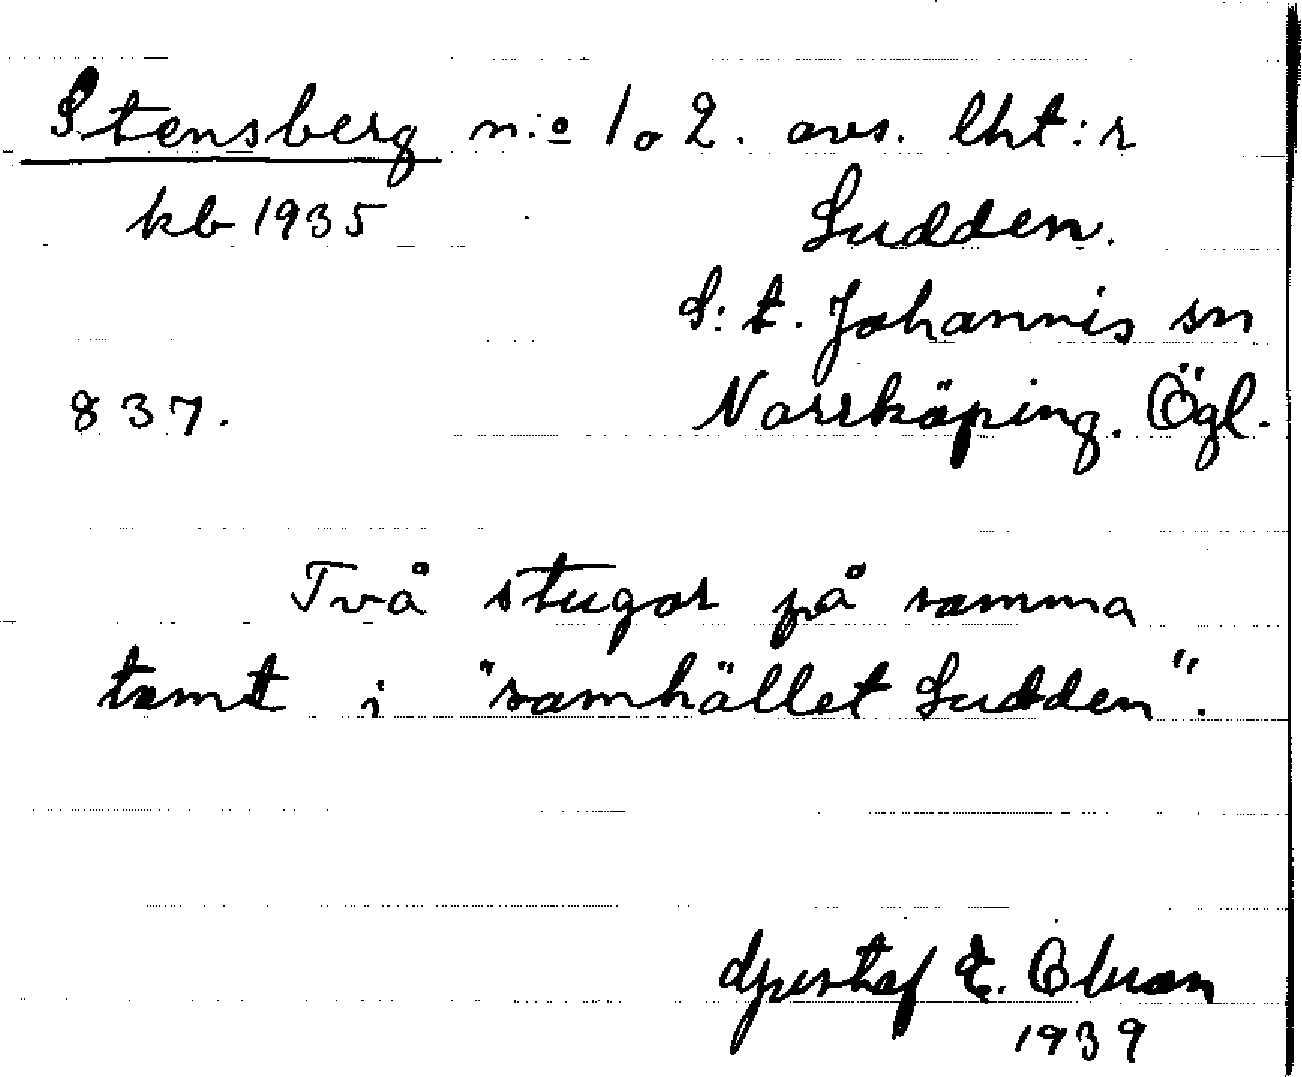 Stensberg n:o 1 o 2. avs. lht:r
kb 1935 Sudden.
S:t. Johannis sn
837. Norrköping. Ögl.
Två stugor på samma
tomt i "samhället Sudden".
Gustaf E. Olsson
1939